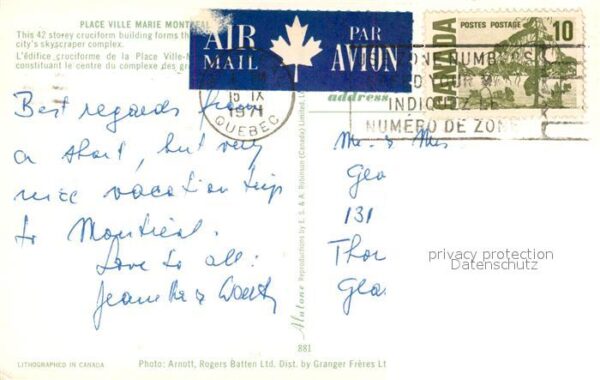 PLACE VILLE MARIE MONTREAL
This 42 storey cruciform building forms th
city's skyscraper complex.
L'édifice cruciforme de la Place Ville-M
constituant le centre du complexe des gr
AIR MAIL
PAR AVION
POSTES POSTAGE
10
CANADA
15 IX
1971
QUEBEC
ZONE NUMBERS
INDIQUEZ LE
NUMÉRO DE ZONE
address
Best regards from
a short, but very
nice vacation trip
to Montreal.
Love to all:
Mr. & Mrs
Geo
131
Thor
Glas
privacy protection
Datenschutz
Alutone Reproductions by E. S. & A. Robinson (Canada) Limited,
881
LITHOGRAPHED IN CANADA
Photo: Arnott, Rogers Batten Ltd. Dist. by Granger Frères Lt